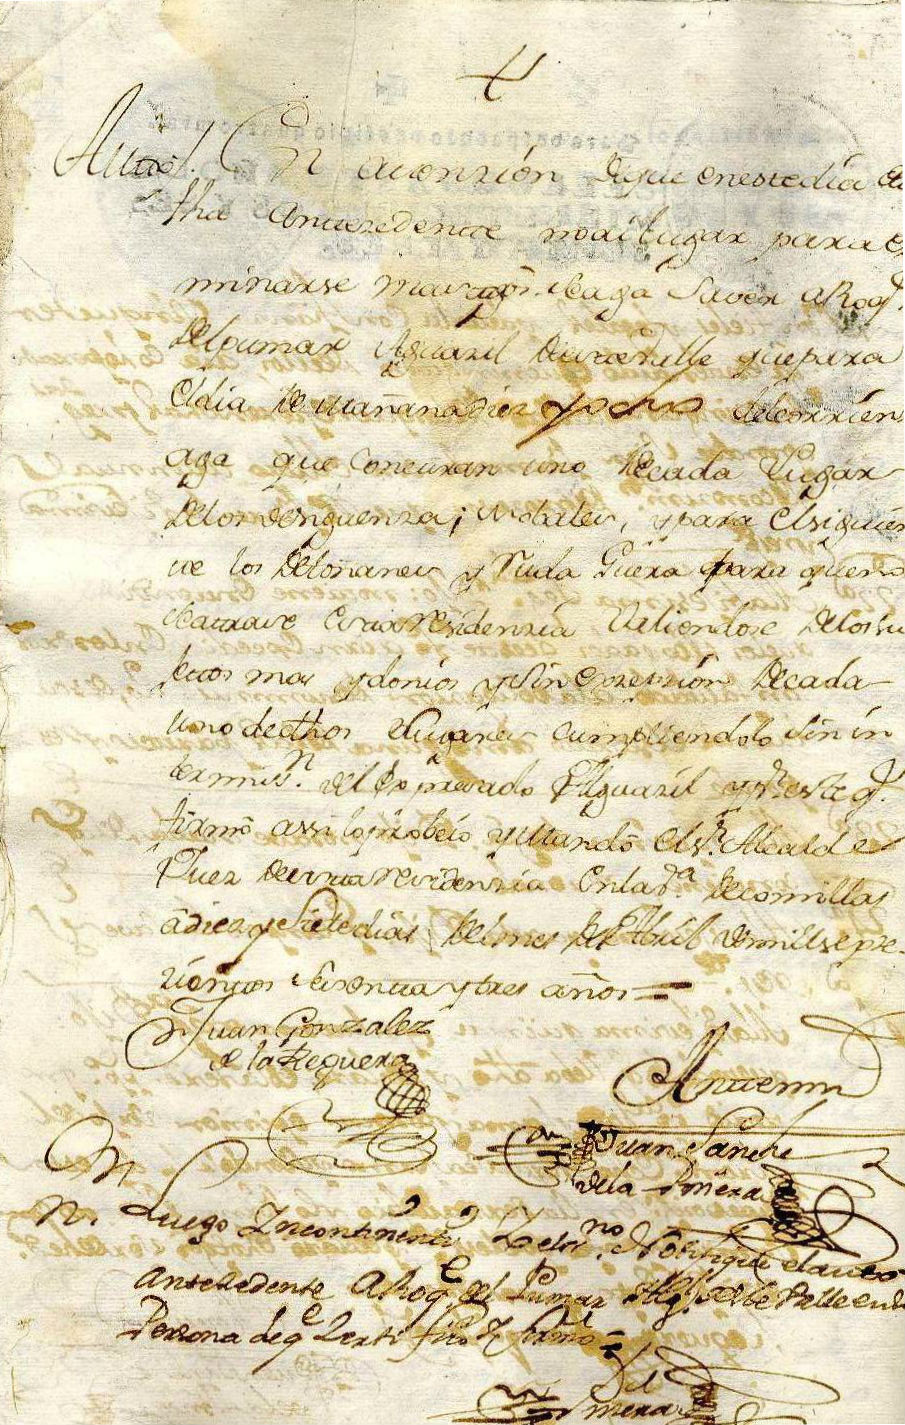 Auto. En atenzion aque en este dia de
fha antezedente no ai lugar para ex
minarse mas tgos. se aga saver a Roqe.
del pumar Alguazil de este valle que para
el dia de mañana diez y ocho del corrien
aga que concurran uno de cada lugar
de los de y para el siguien
te de los de y Ruda Guera para que no
se atrase esta residenzia valiendose de los su
jetos mas ydonios y sin exzepzion de cada
uno de dhos lugares cumpliendolo sin in
termisn. el espresado Alguazil y pr. este qe.
firmo assi lo probeio y mando el sr. Alcalde
Juez de esta residenzia en la va. de comillas
a diez y siete dias del mes de Abril de mill sete
zientos sesenta y tres años =
Juan Gonzalez
de la Reguera
Antemi
Juan Sanche
de la
N. Luego Yncontinenti Yo el esno. Notifique el auto
antezedente a Roqe. del Pumar Algl. deste Valle en su
Persona de qe Zertifico y firmo =